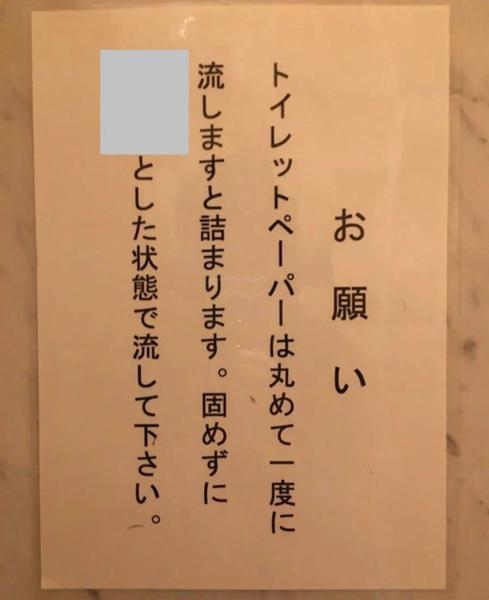 お願い
トイレットペーパーは丸めて一度に
流しますと詰まります。固めずに
とした状態で流して下さい。